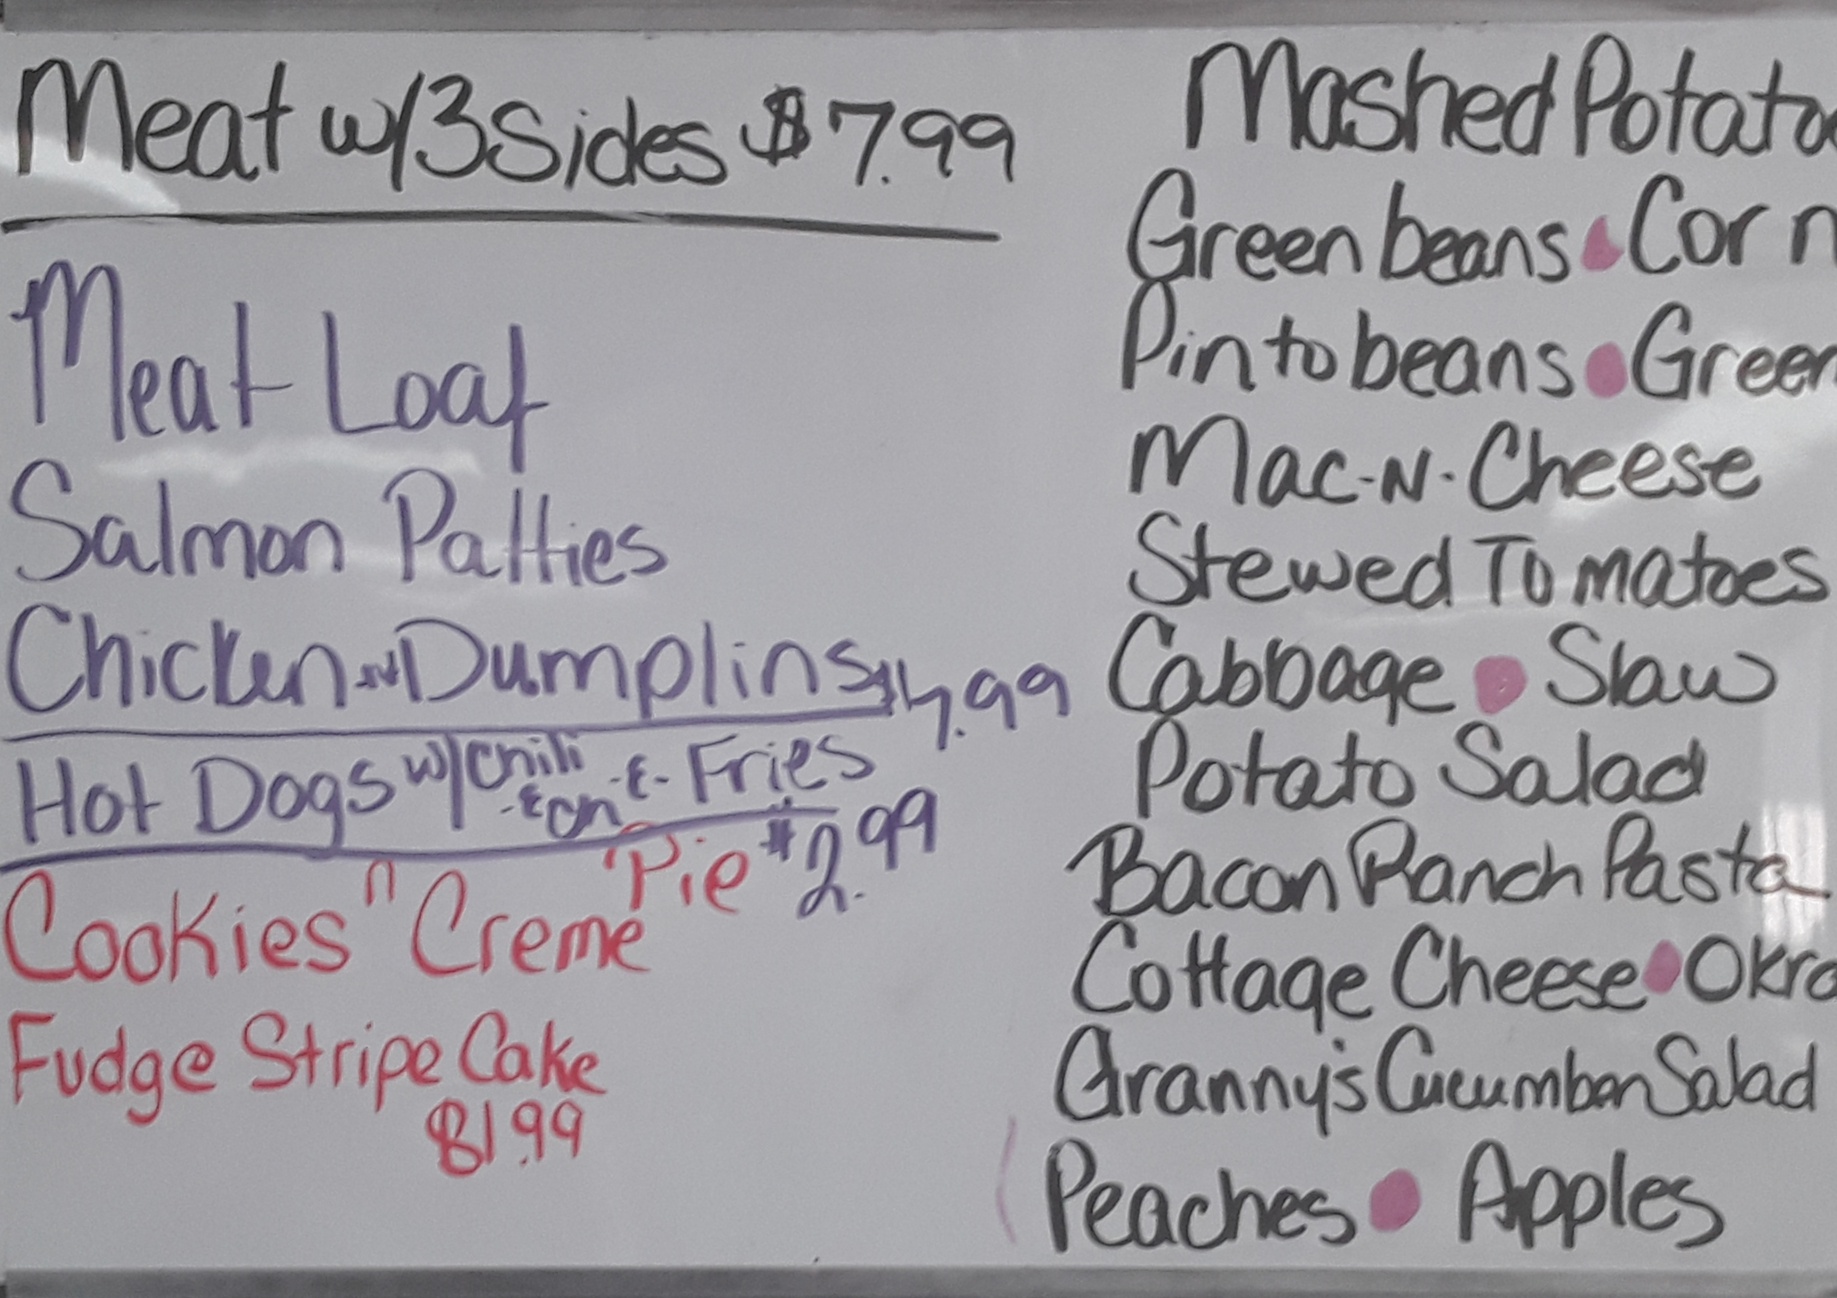 Meat w/3 Sides $7.99
Meat Loaf
Salmon Patties
Chicken-N-Dumplins $7.99
Hot Dogs w/chili -&- Fries
-&on
$2.99
Cookies "n" Creme Pie
Fudge Stripe Cake
$1.99
Mashed Potato
Green beans • Corn
Pinto beans • Green
Mac-N-Cheese
Stewed Tomatoes
Cabbage • Slaw
Potato Salad
Bacon Ranch Pasta
Cottage Cheese • Okra
Granny's Cucumber Salad
Peaches • Apples